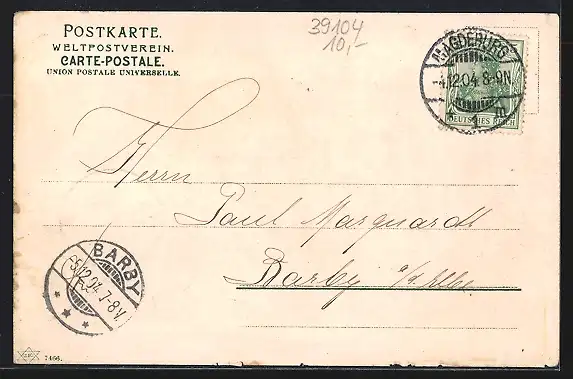 POSTKARTE.
WELTPOSTVEREIN.
CARTE-POSTALE.
UNION POSTALE UNIVERSELLE.
39104
10,-
MAGDEBURG
-4.12.04.8-9N
1 m
DEUTSCHES REICH
Herrn
Paul Marquardt
Barby a/Elbe.
BARBY
-5.12.04.7-8V
* * *
7466.